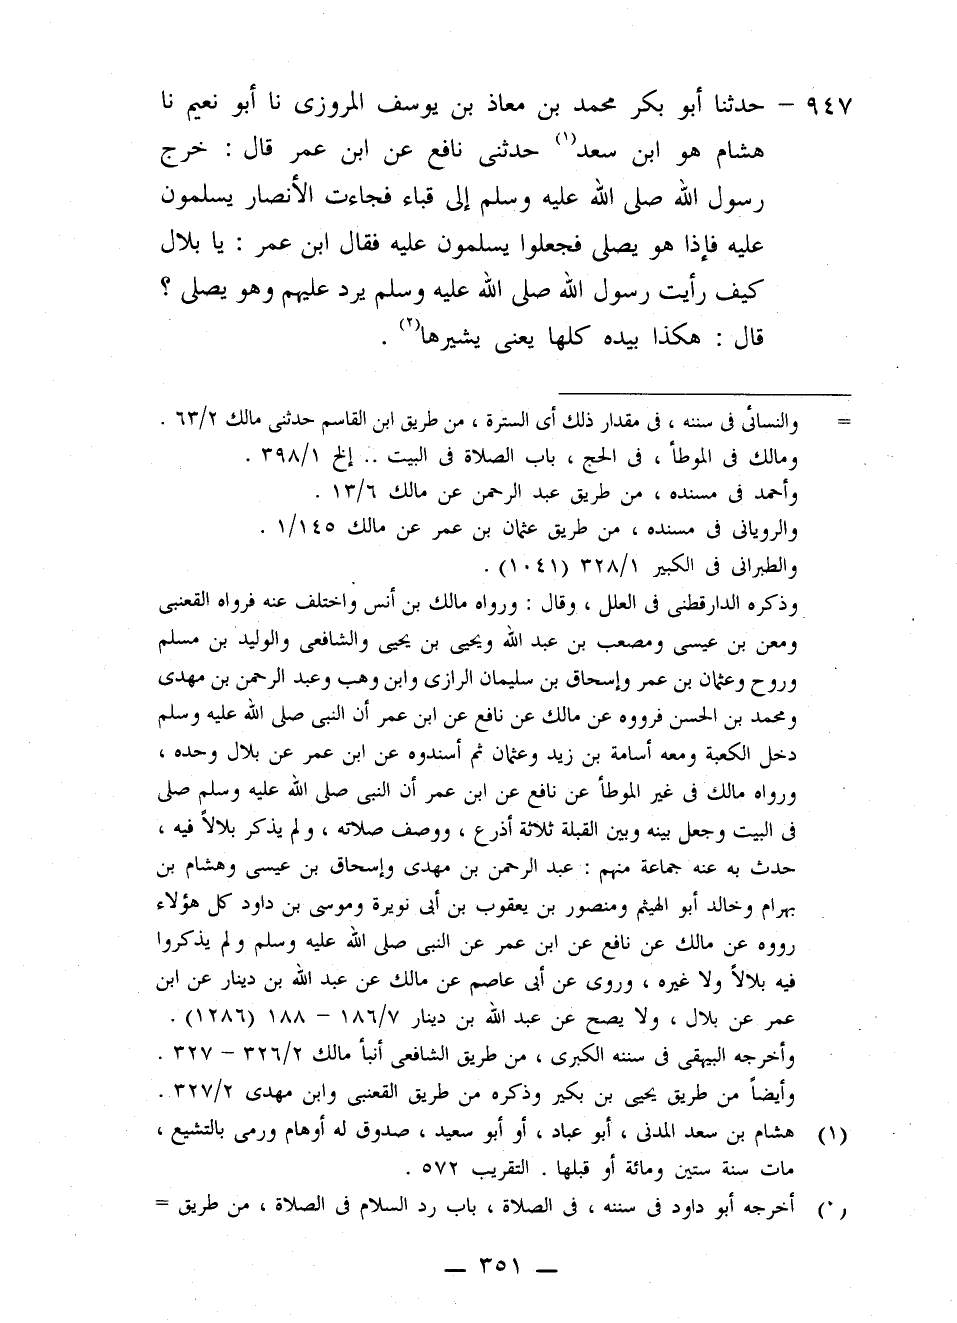 ٩٤٧ – حدثنا أبو بكر محمد بن معاذ بن يوسف المروزى نا أبو نعيم نا
هشام هو ابن سعد(١) حدثنى نافع عن ابن عمر قال : خرج
رسول الله صلى الله عليه وسلم إلى قباء فجاءت الأنصار يسلمون
عليه فإذا هو يصلى فجعلوا يسلمون عليه فقال ابن عمر : يا بلال
كيف رأيت رسول الله صلى الله عليه وسلم يرد عليهم وهو يصلى ؟
قال : هكذا بيده كلها يعنى يشيرها(٢) .
= والنسائى فى سننه ، فى مقدار ذلك أى السترة ، من طريق ابن القاسم حدثنى مالك ٦٣/٢ .
ومالك فى الموطأ ، فى الحج ، باب الصلاة فى البيت .. إلخ ٣٩٨/١ .
وأحمد فى مسنده ، من طريق عبد الرحمن عن مالك ١٣/٦ .
والرويانى فى مسنده ، من طريق عثمان بن عمر عن مالك ١/١٤٥ .
والطبرانى فى الكبير ٣٢٨/١ (١٠٤١) .
وذكره الدارقطنى فى العلل ، وقال : ورواه مالك بن أنس واختلف عنه فرواه القعنبى
ومعن بن عيسى ومصعب بن عبد الله ويحيى بن يحيى والشافعى والوليد بن مسلم
وروح وعثمان بن عمر وإسحاق بن سليمان الرازى وابن وهب وعبد الرحمن بن مهدى
ومحمد بن الحسن فرووه عن مالك عن نافع عن ابن عمر أن النبى صلى الله عليه وسلم
دخل الكعبة ومعه أسامة بن زيد وعثمان ثم أسندوه عن ابن عمر عن بلال وحده ،
ورواه مالك فى غير الموطأ عن نافع عن ابن عمر أن النبى صلى الله عليه وسلم صلى
فى البيت وجعل بينه وبين القبلة ثلاثة أذرع ، ووصف صلاته ، ولم يذكر بلالاً فيه ،
حدث به عنه جماعة منهم : عبد الرحمن بن مهدى وإسحاق بن عيسى وهشام بن
بهرام وخالد أبو الهيثم ومنصور بن يعقوب بن أبى نويرة وموسى بن داود كل هؤلاء
رووه عن مالك عن نافع عن ابن عمر عن النبى صلى الله عليه وسلم ولم يذكروا
فيه بلالاً ولا غيره ، وروى عن أبى عاصم عن مالك عن عبد الله بن دينار عن ابن
عمر عن بلال ، ولا يصح عن عبد الله بن دينار ١٨٦/٧ – ١٨٨ (١٢٨٦) .
وأخرجه البيهقى فى سننه الكبرى ، من طريق الشافعى أنبأ مالك ٣٢٦/٢ – ٣٢٧ .
وأيضاً من طريق يحيى بن بكير وذكره من طريق القعنبى وابن مهدى ٣٢٧/٢ .
(١) هشام بن سعد المدنى ، أبو عباد ، أو أبو سعيد ، صدوق له أوهام ورمى بالتشيع ،
مات سنة ستين ومائة أو قبلها . التقريب ٥٧٢ .
(٢) أخرجه أبو داود فى سننه ، فى الصلاة ، باب رد السلام فى الصلاة ، من طريق =
— ٣٥١ —